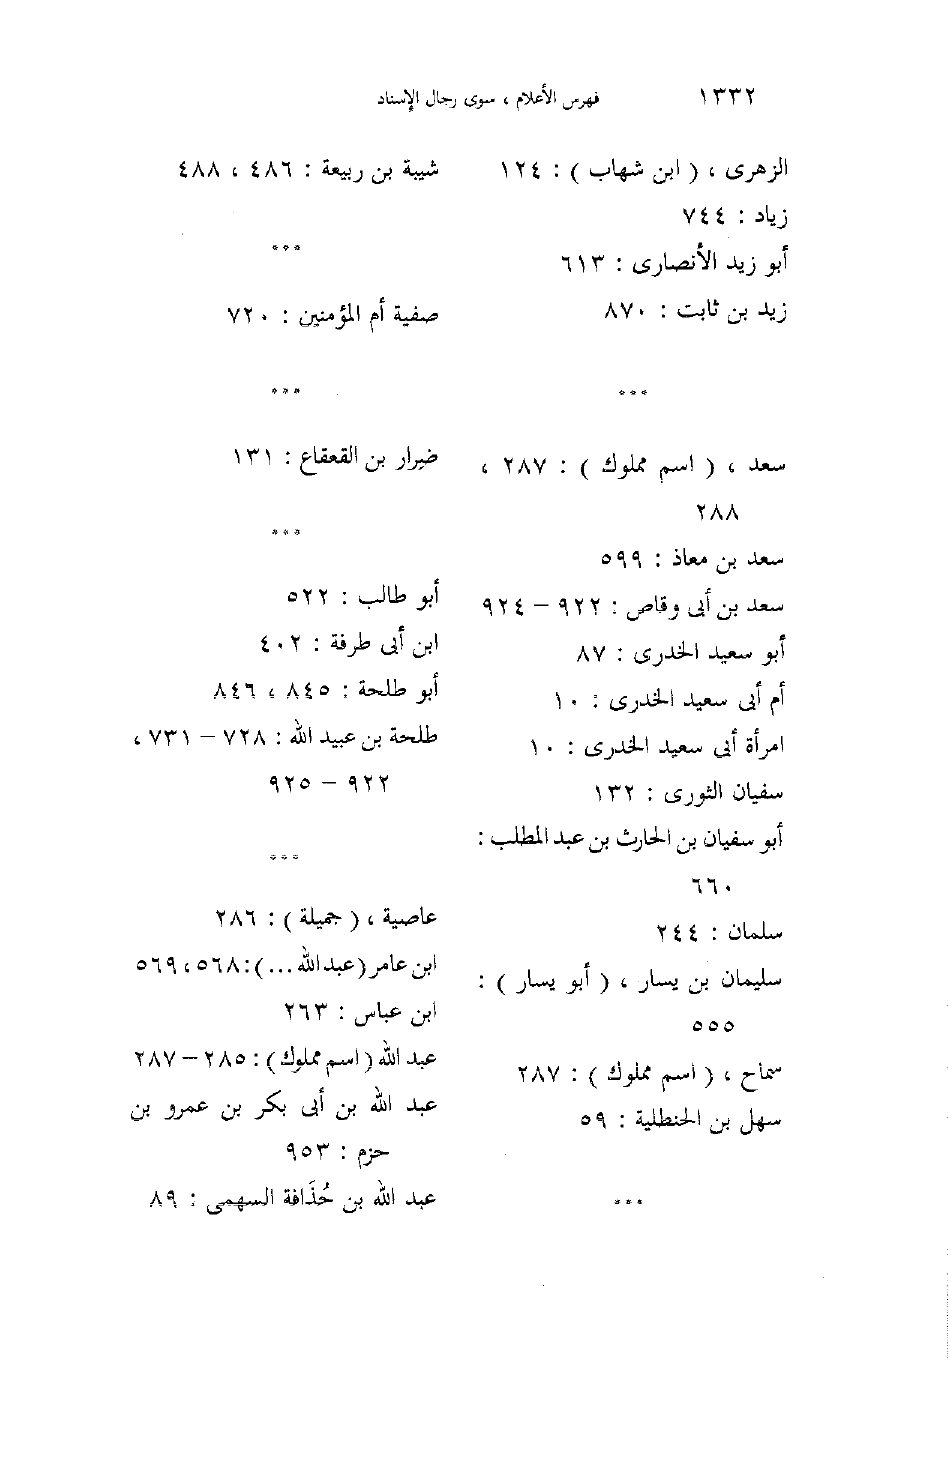 ١٣٣٢ فهرس الأعلام ، سوى رجال الإسناد
الزهرى ، ( ابن شهاب ) : ١٢٤
زياد : ٧٤٤
أبو زيد الأنصارى : ٦١٣
زيد بن ثابت : ٨٧٠
***
سعد ، ( اسم مملوك ) : ٢٨٧ ،
٢٨٨
سعد بن معاذ : ٥٩٩
سعد بن أبى وقاص : ٩٢٢ – ٩٢٤
أبو سعيد الخدرى : ٨٧
أم أبى سعيد الخدرى : ١٠
امرأة أبى سعيد الخدرى : ١٠
سفيان الثورى : ١٣٢
أبو سفيان بن الحارث بن عبد المطلب :
٦٦٠
سلمان : ٢٤٤
سليمان بن يسار ، ( أبو يسار ) :
٥٥٥
سماح ، ( اسم مملوك ) : ٢٨٧
سهل بن الحنطلية : ٥٩
***
شيبة بن ربيعة : ٤٨٦ ، ٤٨٨
***
صفية أم المؤمنين : ٧٢٠
***
ضيرار بن القعقاع : ١٣١
***
أبو طالب : ٥٢٢
ابن أبى طرفة : ٤٠٢
أبو طلحة : ٨٤٥ ، ٨٤٦
طلحة بن عبيد الله : ٧٢٨ – ٧٣١ ،
٩٢٢ – ٩٢٥
***
عاصية ، ( جميلة ) : ٢٨٦
ابن عامر (عبد الله ...) : ٥٦٨ ، ٥٦٩
ابن عباس : ٢٦٣
عبد الله ( اسم مملوك ) : ٢٨٥ – ٢٨٧
عبد الله بن أبى بكر بن عمرو بن
حزم : ٩٥٣
عبد الله بن حُذَافة السهمى : ٨٩